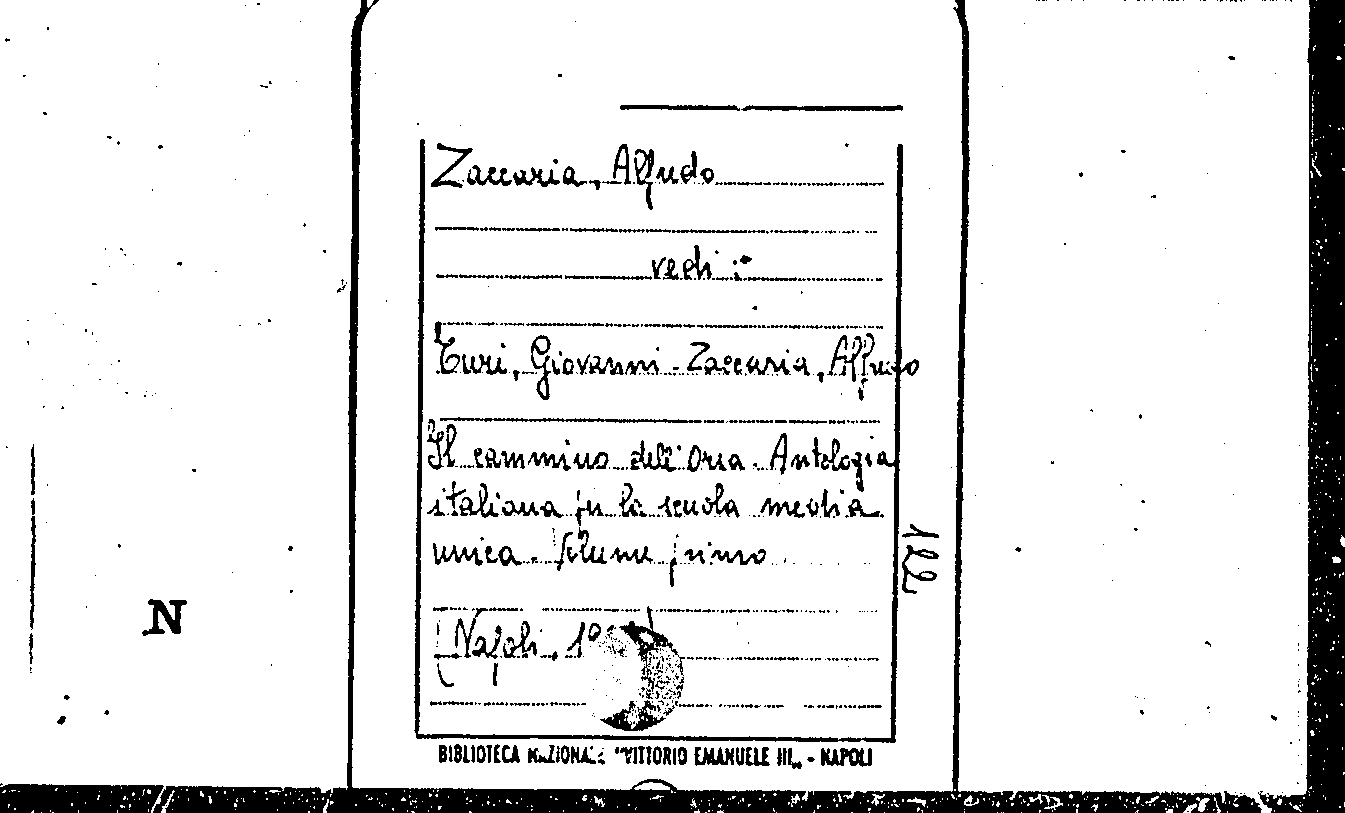 Zaccaria, Alfredo
vedi :
Turi, Giovanni - Zaccaria, Alfredo
Il cammino dell'Orsa. Antologia
italiana per la scuola media
unica. Volume primo
122
(Napoli,
N
BIBLIOTECA NAZIONALE "VITTORIO EMANUELE III" - NAPOLI